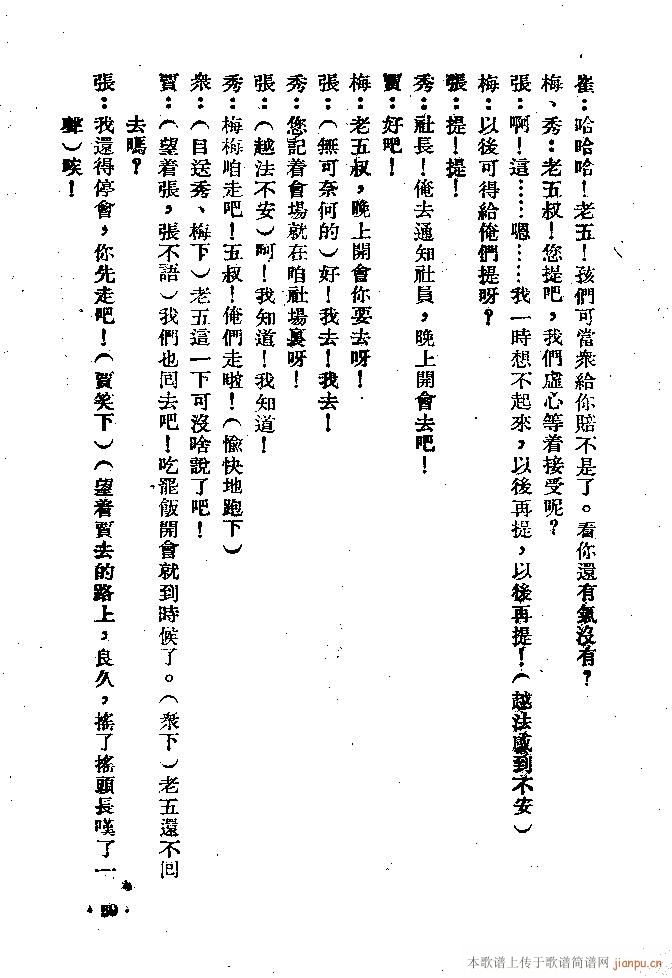 崔：哈哈哈！老五！孩們可當衆給你賠不是了。看你還有氣沒有？
梅、秀：老五叔！您提吧，我們虛心等着接受呢？
張：啊！這……嗯……我一時想不起來，以後再提，以後再提！（越法感到不安）
梅：以後可得給俺們提呀？
張：提！提！
秀：社長！俺去通知社員，晚上開會去吧！
賈：好吧！
梅：老五叔，晚上開會你要去呀！
張：（無可奈何的）好！我去！我去！
秀：您記着會場就在咱社場裏呀！
張：（越法不安）啊！我知道！我知道！
秀：梅梅咱走吧！五叔！俺們走啦！（愉快地跑下）
衆：（目送秀、梅下）老五這一下可沒啥說了吧！
賈：（望着張，張不語）我們也回去吧！吃罷飯開會就到時候了。（衆下）老五還不回
去嗎？
張：我還得停會，你先走吧！（賈笑下）（望着賈去的路上，良久，搖了搖頭長嘆了一
聲）唉！
59
本歌谱上传于歌谱简谱网
jianpu.cn